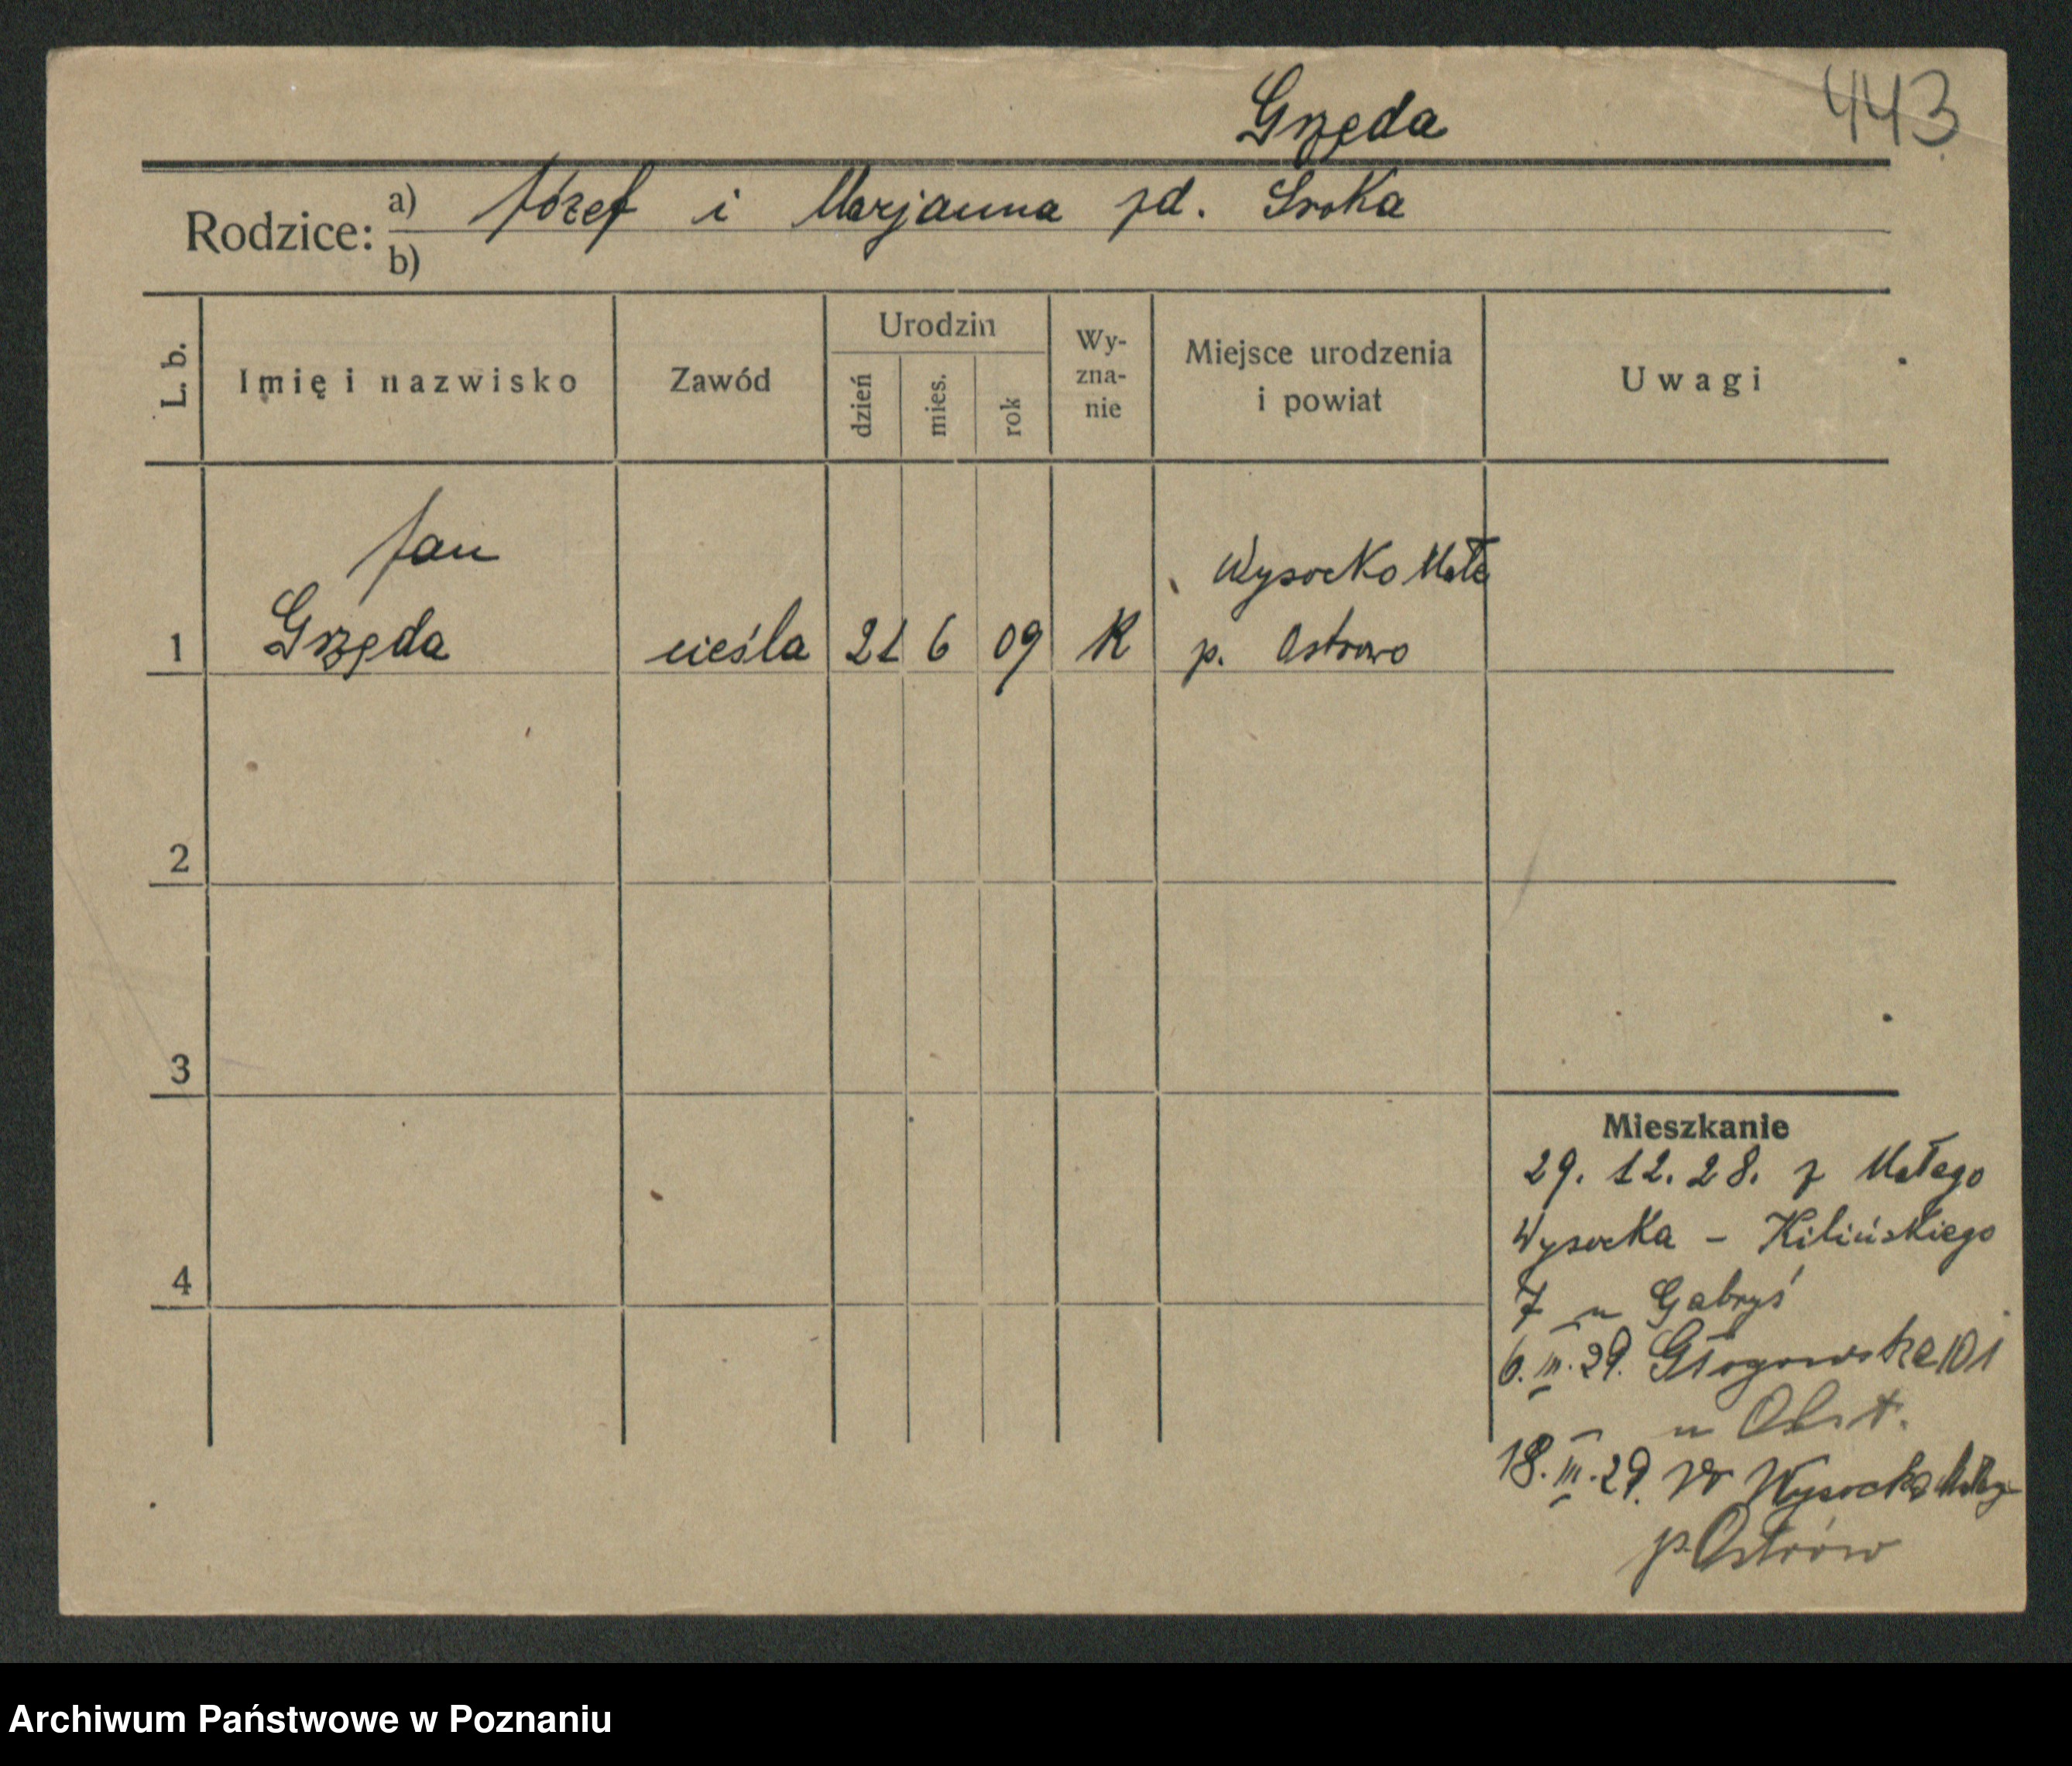 Grzęda 443
Rodzice: a) Józef i Marjanna zd. Sroka
b)
L. b. Imię i nazwisko Zawód Urodzin dzień mies. rok Wy-zna-nie Miejsce urodzenia i powiat Uwagi
Jan Wysocko Małe
1 Grzęda cieśla 21 6 09 K p. Ostrowo
2
3
4
Mieszkanie
29. 12. 28. z Małego
Wysocka - Kilińskiego
7 u Gabryś
6. III. 29. Głogowska 101
u
18. III. 29. do Wysocka
p. Ostrów
Archiwum Państwowe w Poznaniu